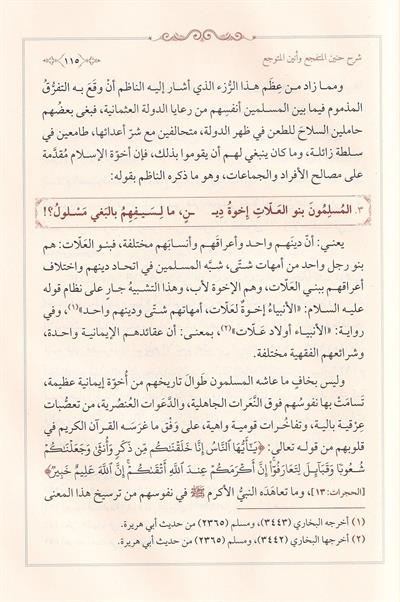 شرح حنين المتفجع وأنين المتوجع
١١٥
ومما زاد من عِظَم هذا الرُّزء الذي أشار إليه الناظم أنْ وقَعَ به التفرُّقُ
المذموم فيما بين المسلمين أنفسِهم من رعايا الدولة العثمانية، فبغى بعضُهم
حاملين السلاحَ للطعن في ظهر الدولة، متحالفين مع شرّ أعدائها، طامعين في
سلطة زائلة، وما كان ينبغي لهم أن يقوموا بذلك، فإن أخوّة الإسلام مُقدَّمة
على مصالح الأفراد والجماعات، وهو ما ذكره الناظم بقوله:
٣. المُسلِمُونَ بنو العَلّاتِ إخوةُ دِيـ ـنٍ، ما لِسَيفِهِمُ بالبَغي مَسْلولُ؟!
يعني: أنّ دينَهم واحد وأعراقَهم وأنسابَهم مختلفة، فبنو العَلّات: هم
بنو رجل واحد من أمهات شتّى، شبَّه المسلمين في اتحاد دينهم واختلاف
أعراقهم ببني العَلّات، وهم الإخوة لأب، وهذا التشبيهُ جارٍ على نظام قوله
عليه السلام: «الأنبياءُ إخوةٌ لعَلّات، أمهاتهم شتّى ودينهم واحد»(١)، وفي
رواية: «الأنبياء أولاد عَلّات»(٢)، بمعنى: أن عقائدهم الإيمانية واحدة،
وشرائعهم الفقهية مختلفة.
وليس بخافٍ ما عاشه المسلمون طَوالَ تاريخهم من أخوّة إيمانية عظيمة،
تَسامَتْ بها نفوسُهم فوق النَّعرات الجاهلية، والدَّعوات العُنصُرية، من تعصُّبات
عِرْقية بالية، وتفاخُرات قومية واهية، على وَفْق ما غرَسَه القرآن الكريم في
قلوبهم من قوله تعالى: ﴿يَٰٓأَيُّهَا ٱلنَّاسُ إِنَّا خَلَقْنَٰكُم مِّن ذَكَرٍ وَأُنثَىٰ وَجَعَلْنَٰكُمْ
شُعُوبًا وَقَبَآئِلَ لِتَعَارَفُوٓا۟ إِنَّ أَكْرَمَكُمْ عِندَ ٱللَّهِ أَتْقَىٰكُمْ إِنَّ ٱللَّهَ عَلِيمٌ خَبِيرٌ﴾
[الحجرات: ١٣]، وما تعاهَدَه النبيُّ الأكرم ﷺ في نفوسهم من ترسيخ هذا المعنى
(١) أخرجه البخاري (٣٤٤٣)، ومسلم (٢٣٦٥) من حديث أبي هريرة.
(٢) أخرجها البخاري (٣٤٤٢)، ومسلم (٢٣٦٥) من حديث أبي هريرة.